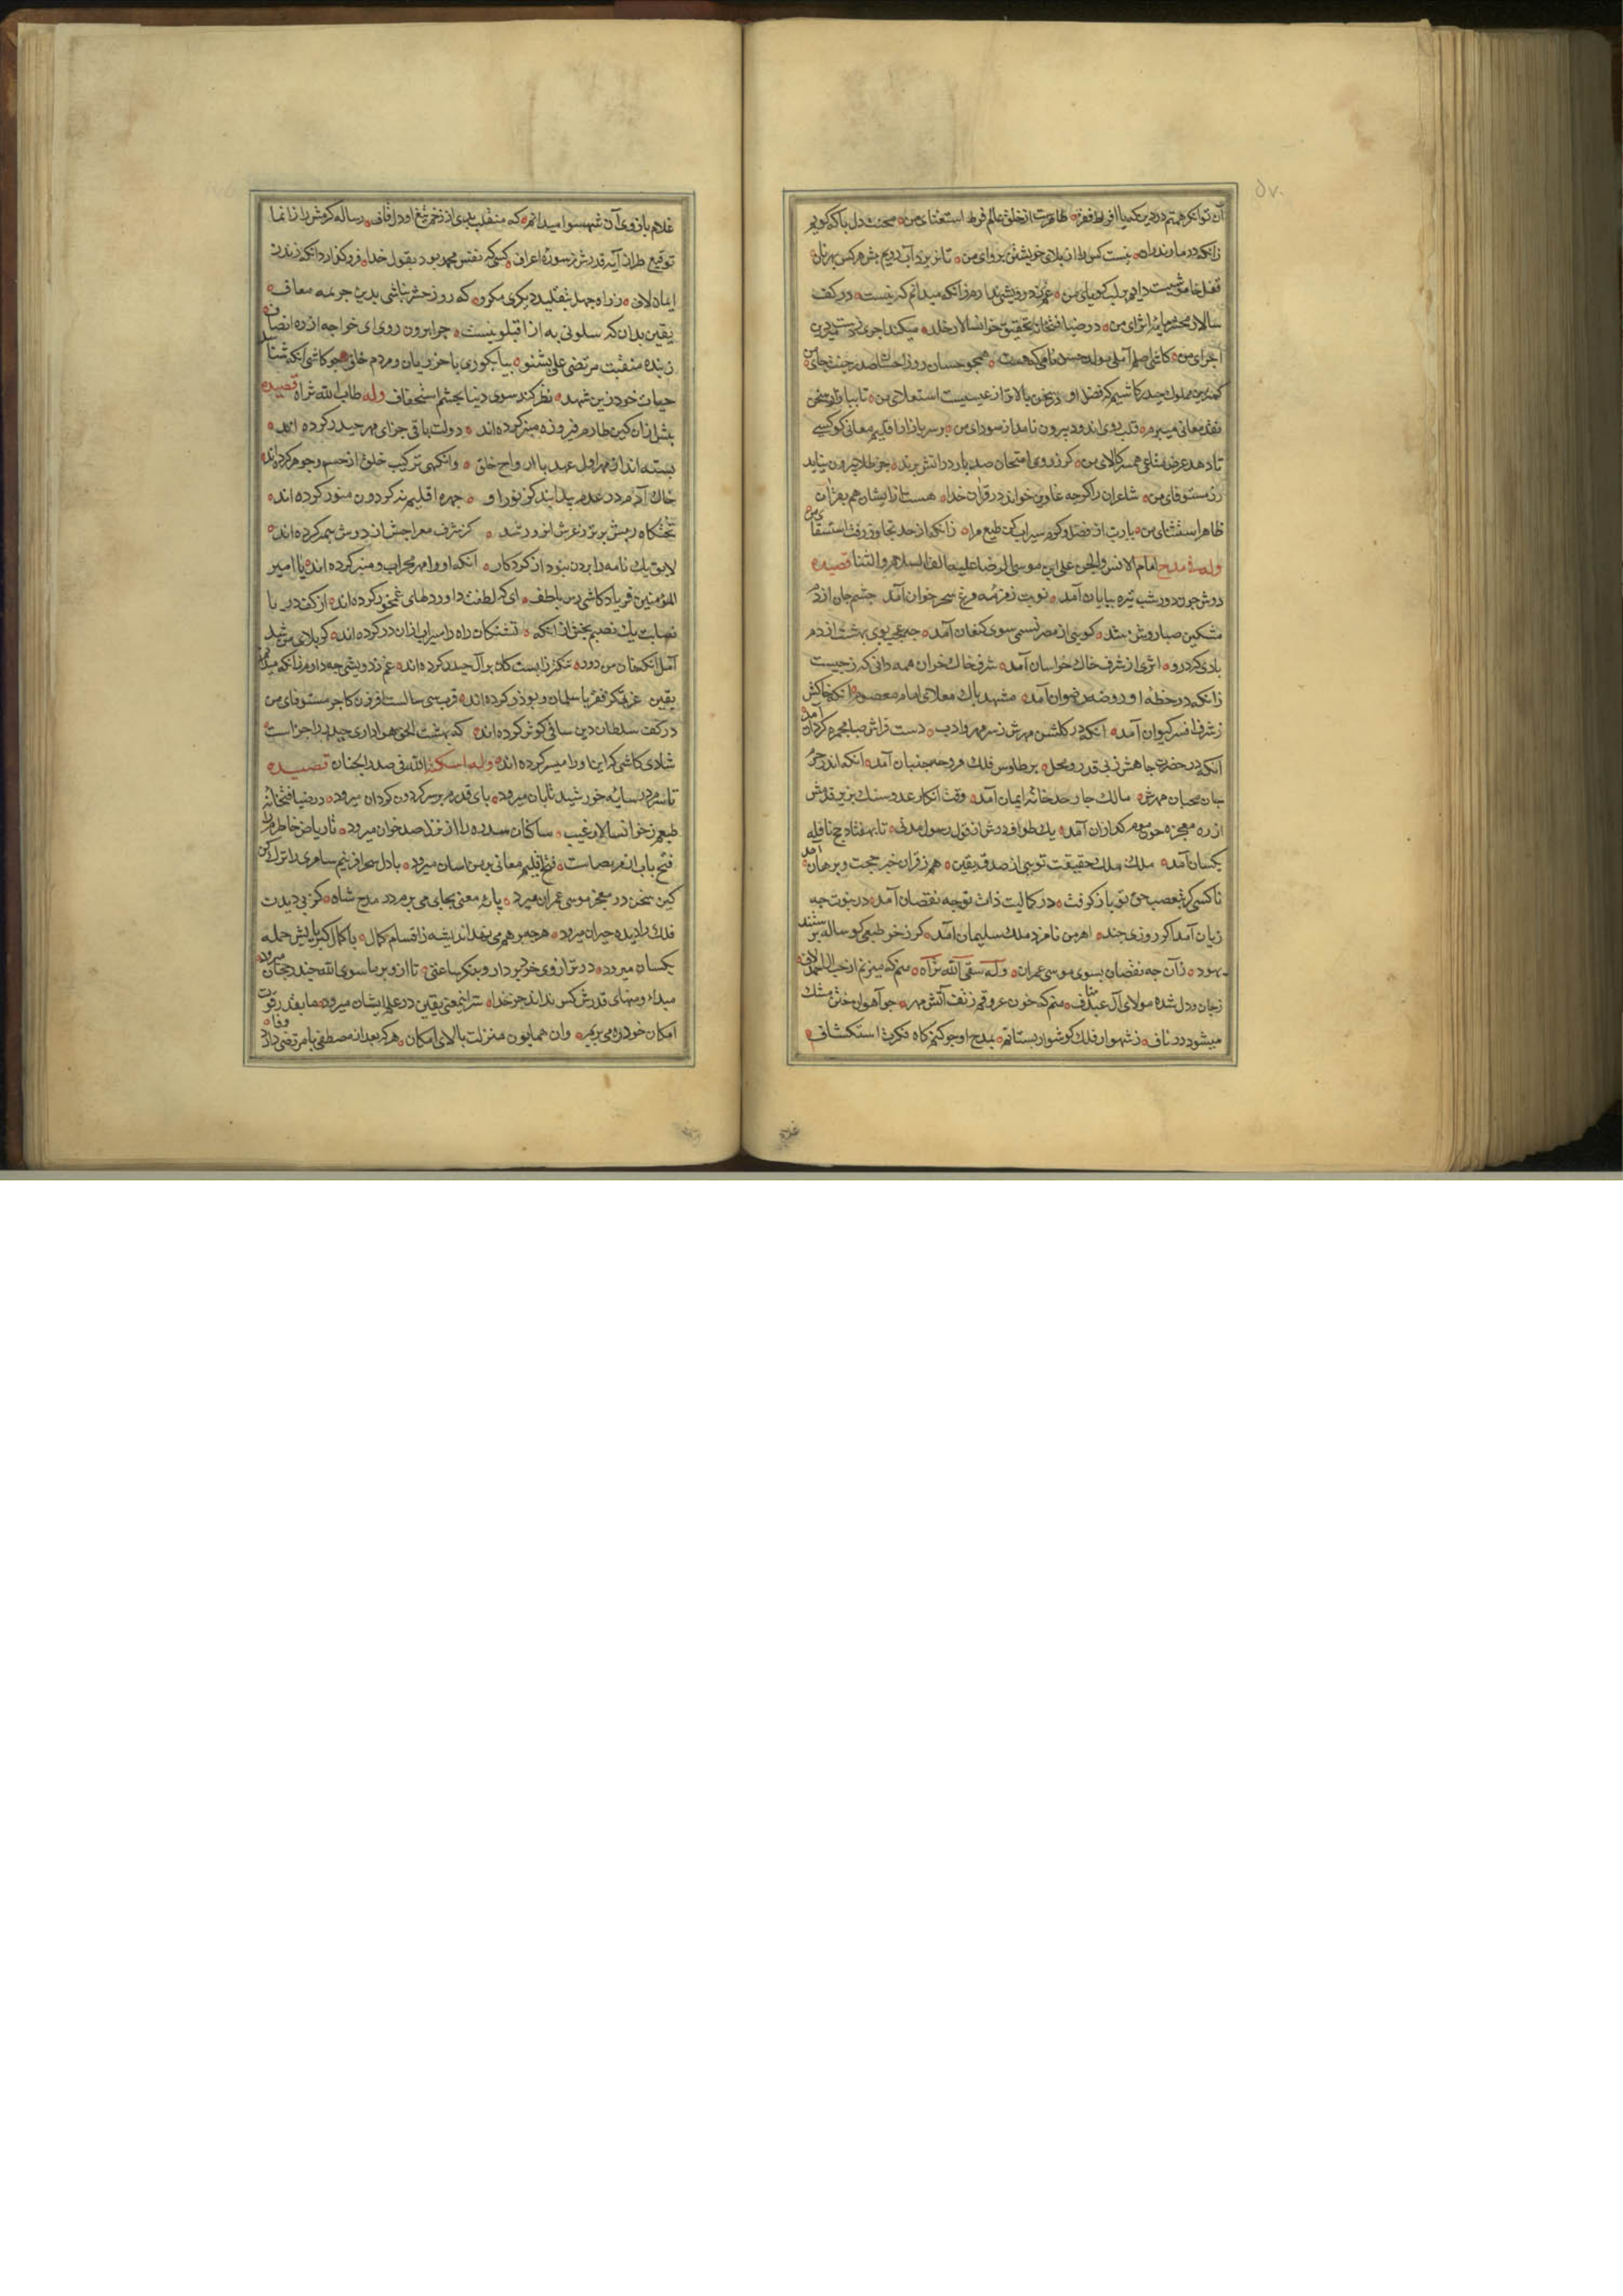 آن توانکر همتم در دین که با افراط فقر ظاهرست از خلق عالم فرط استغنای من محنت دل با که کویم
زانکه در مازندران نیست کس را از بلای خویشتن پروای من تا نریزد آب رویم پیش هر کس بهر نان
قفل خاموشیست دایم بر لب کویای من غم ز درویشی ندارم زانکه میدانم که نیست در کف
سالار محشر مایهٔ اثرای من در ضیافتخانهٔ تحقیق خوانسالار خلد میکند اجری
اجرای من کاشی اصلم آملی مولد حسن نامی که هست همچو حسان روز احسان صدر جنت جای من
کمترین مملوک حیدر کاشیم کز فضل او در سخن بالاتر از عیسیست استعلای من تا ببازار سخن
نقد معانی میبرم قلب روی اندود بیرون نامد از سودای من بر سر بازار اقلیم معانی کو کسی
تا دهد عرض متاعی همسر کالای من کر ز روی امتحان صد بار در آتش برند جز طلا بیرون نیاید
زر مستوفای من شاعران را کرچه غاوین خواند در قران خدا هست ازایشان هم بقران
ظاهر استثنای من یا رب از فضل و کرم سیراب کن طبع مرا زانکه از حد تجاوز رفت استسقای من
وله فی مدح امام الانس والجن علی ابن موسی الرضا علیه الف السلام والثنا قصیده
دوش چون دور شب تیره بپایان آمد نوبت زمزمه مرغ سحر خوان آمد چشم جان از دم
مشکین صبا روشن شد کویی از مصر نسیمی سوی کنعان آمد چه عجب بوی بهشت از دم
بادی کز درو اثری از شرف خاک خراسان آمد شرف خاک خراسان همه دانی که ز چیست
زانکه در خطه او روضه رضوان آمد مشهد پاک معلای امام معصوم آنکه خاکش
ز شرف افسر کیوان آمد آنکه در کلشن مهرش ز سر مهر و ادب دست فراش صبا مجمره کردان آمد
آنکه در حضرت جاهش ز پی قدر و محل پر طاوس فلک مروحه جنبان آمد آنکه اندر حرم
جان محبان مهرش مالک چار حد خانه ایمان آمد وقت انکار عدو سنک بزیر قدمش
از ره معجزه چون موم کدازان آمد یک طواف درش از قول رسول مدنی تا بهفتاد حج نافله
یکسان آمد ملک ملک حقیقت تویی از صدق یقین هم ز قران خبر حجت و برهان آمد
ناکسی کر بتعصب حق تو باز کرفت در کمالیت ذات تو چه نقصان آمد در نبوت چه
زیان آمد اکر روزی چند اهرمن نامزد ملک سلیمان آمد کر ز خر طبعی کوساله پرستند
یهود زان چه نقصان بسوی موسی عمران وله سقی الله ثراه منم که میزنم از حب
ز جان و دل شده مولای آل عبد مناف منم که خون عروقم ز تف آتش مهر چو آهوان ختن مشک
میشود در ناف ز شهوار فلک کوشوار بستانم بمدح او چو کنم کاه فکرت استکشاف
غلام بازوی آن شهسوار میدانم که منقلب بدی از زخم تیغ او دل قاف رساله کرمش را ز انما
توقیع طراز آیه قدرش ز سوره اعراف کسی که نفس محمد بود بقول خدا فرو کذارد آنکه زند ز
ایمان لاف ز راه جهل بتقلید دیکری مکرو که روز حشر نباشی بدین جریمه معاف
یقین بدان که سلونی به از اقیلونیست چرا برون روی ای خواجه از ره انصاف
زبنده منقبت مرتضی علی بشنو بیا بکوری باخرزیان و مردم خاف چو کاشی آنکه شناسد
حیات خود زین شهد نظر کند سوی دنیا بچشم استخفاف وله طاب الله ثراه قصیده
پیش ازان کین طارم فیروزه منظر کرده اند دولت باقی جزای مهر حیدر کرده اند
بسته اند از مهر اول عهد با ارواح خلق وانکهی ترکیب خلق از جسم و جوهر کرده اند
خاک آدم در عدم بد ناپدید کز نور او چهره اقلیم نه کردون منور کرده اند
تختکاه رمش برتر ز عرش انور شد کز شرف معراجش از دوش پیمبر کرده اند
لایق یک نامه را بردن نبود از کردکار آنکه او را مهر محراب و منبر کرده اند یا امیر
المؤمنین فریاد کاشی رس بلطف ای که لطفت داور دلهای غمخور کرده اند از کف دریا
نصابت یک نصیبم بخش ازانکه تشنکان راه را سیراب ازان در کرده اند کربلای من شد
آمل آنکه خان من درو تنکتر زابست کان بر آل حیدر کرده اند غم ز درویشی چه دارم زانکه میدانم
یقین عزت کر فقر با سلمان و بوذر کرده اند قرب سی سالست
در کف سلطان دین ساقی کوثر کرده اند که بهشت الحق هواداری حیدر را جزاست
شادی کاشی که این او را میسر کرده اند وله اسکنه الله فی صدر الجنان قصیده
تا سرم در سایه خورشید تابان میرود پای قدرم بر سر کردون کردان میرود در ضیافتخانه
طبعم ز خوانسالار غیب ساکنان سدره را از نزل صد خوان میرود تا ریاض خاطرم را
فتح باب از مرتضاست فتح اقلیم معانی بر من آسان میرود با دل سحرآفرینم سامری را ترک کن
کین سخن در معجز موسی عمران میرود پایه معنی بجای می برم در مدح شاه کز پی دیدن
فلک را دیده حیران میرود هرچه بر هم می نهد اندیشه ز اقسام کمال با کمال کبریایش جمله
یکسان میرود در ترازوی خرد بردار و بنکر ساعتی تا ازو بر ما سوی الله چند رجحان میرود
مبدا و منتهای قدرش کس نداند جز خدا سر این معنی یقین در علم ایشان میرود ما بقدر قوت
امکان خود ره می بریم وان همایون منزلت بالای امکان میرود هر که بعد از مصطفی با مرتضی دارد وفا